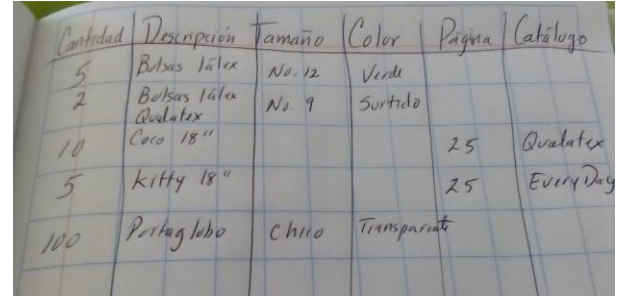 Cantidad Descripción Tamaño Color Página Catálogo
5 Bolsas látex No. 12 Verde
2 Bolsas látex No. 9 Surtido
Qualatex
10 Coco 18" 25 Qualatex
5 Kitty 18" 25 EveryDay
100 Portaglobo Chico Transparente